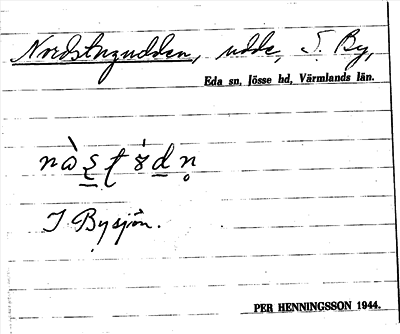 Nordstuguudden, udde, S. By,
Eda sn, Jösse hd, Värmlands län.
I Bysjön.
PER HENNINGSSON 1944.